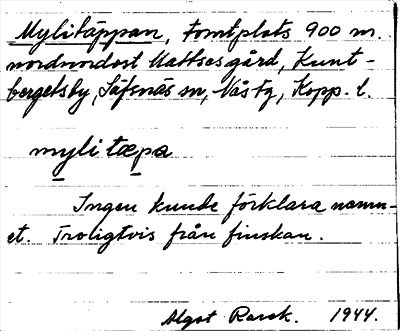 Mylitäppan, tomtplats 900 m.
nordnordost Mattsesgård, Kunt-
bergetsby, Säfsnäs sn, Nås tg, Kopp. l.
myli tæpa
Ingen kunde förklara namn-
et. Troligtvis från finskan.
Algot Rarsk. 1944.